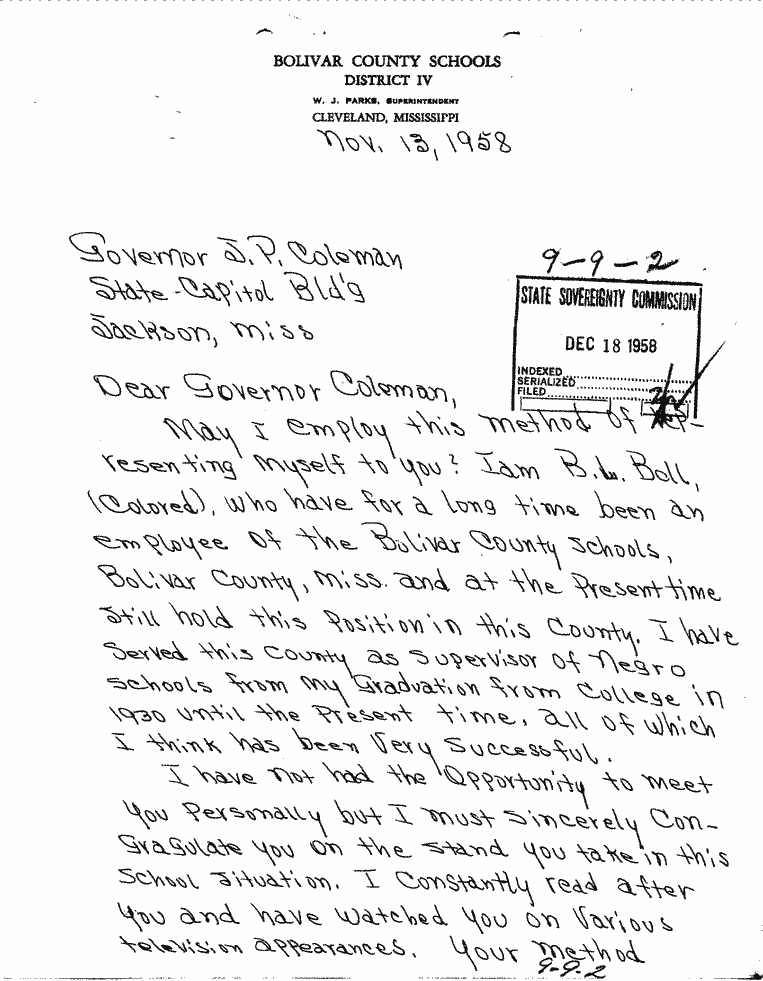 BOLIVAR COUNTY SCHOOLS
DISTRICT IV
W. J. PARKS, SUPERINTENDENT
CLEVELAND, MISSISSIPPI
Nov. 13, 1958
Governor J. P. Coleman
State-Capitol Bld'g
Jackson, Miss
9-9-2
STATE SOVEREIGNTY COMMISSION
DEC 18 1958
INDEXED
SERIALIZED
FILED
Dear Governor Coleman,
May I employ this method of rep-
resenting myself to you? I am B. L. Bell,
(Colored), who have for a long time been an
employee of the Bolivar County Schools,
Bolivar County, Miss. and at the Present time
still hold this Position in this County. I have
Served this County as Supervisor of Negro
Schools from my Graduation from College in
1930 until the Present time, all of which
I think has been Very Successful.
I have not had the Opportunity to meet
you Personally but I must Sincerely Con-
gragulate you on the stand you take in this
School situation. I Constantly read after
you and have watched you on Various
television appearances. Your method
9-9-2